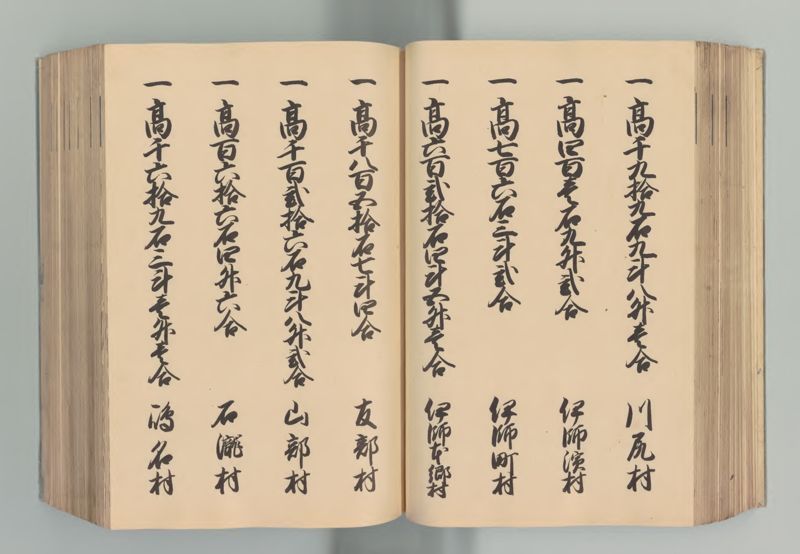 一高千九拾九石九斗八升壱合 川尻村
一高四百壱石九升弐合 伊師濱村
一高七百六石三斗弐合 伊師町村
一高六百弐拾石四斗五升壱合 伊師本郷村
一高千八百五拾石七斗四合 友部村
一高千百弐拾六石九斗八升弐合 山部村
一高百六拾六石四升六合 石瀧村
一高千六拾九石三斗壱升壱合 嶋名村